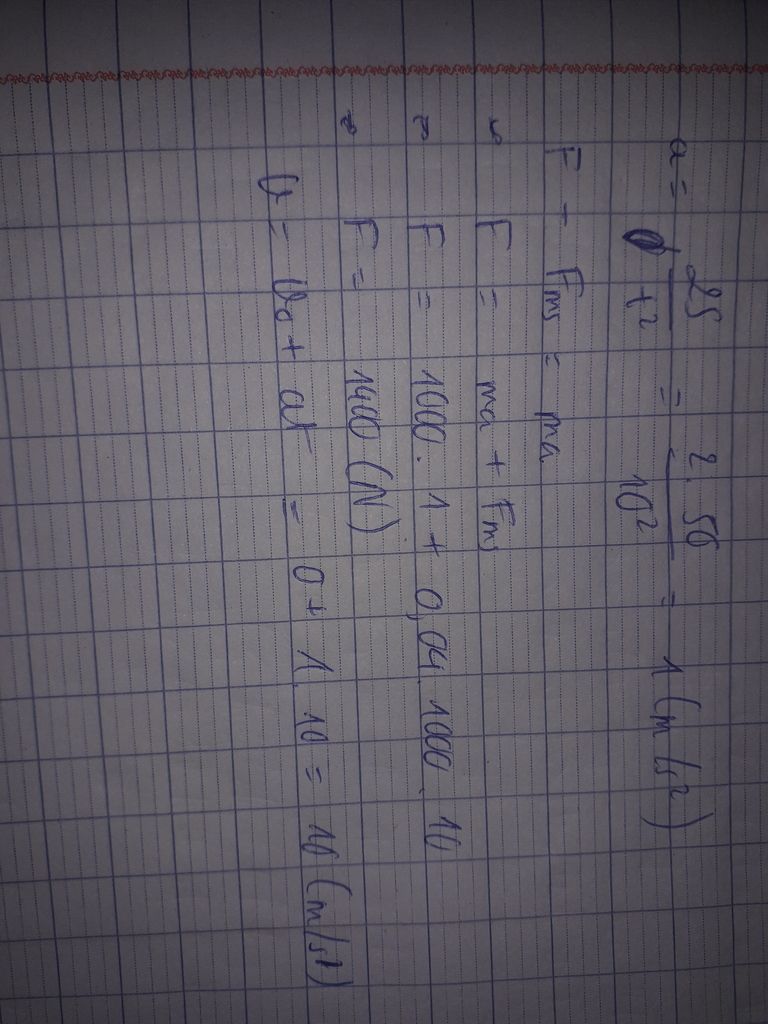 a = 2S / t² = 2.50 / 10² = 1 (m/s²)
F - Fms = ma
F = ma + Fms
F = 1000. 1 + 0,04.1000.10
F = 1400 (N)
v = v₀ + at = 0 + 1.10 = 10 (m/s)